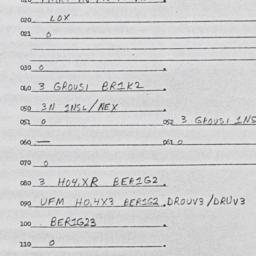 020 LOX
021 0
030 0
040 3 GROUSI BR1K2
050 3N 1NSL/NEX
051 0 052 3 GROUSI 1NS
060 — 061 0
070 0
080 3 HO4,XR BER1G2
090 UFM HO.4X3 BER1G2.DROUV3/DRUV3
100 BER1G23
110 0